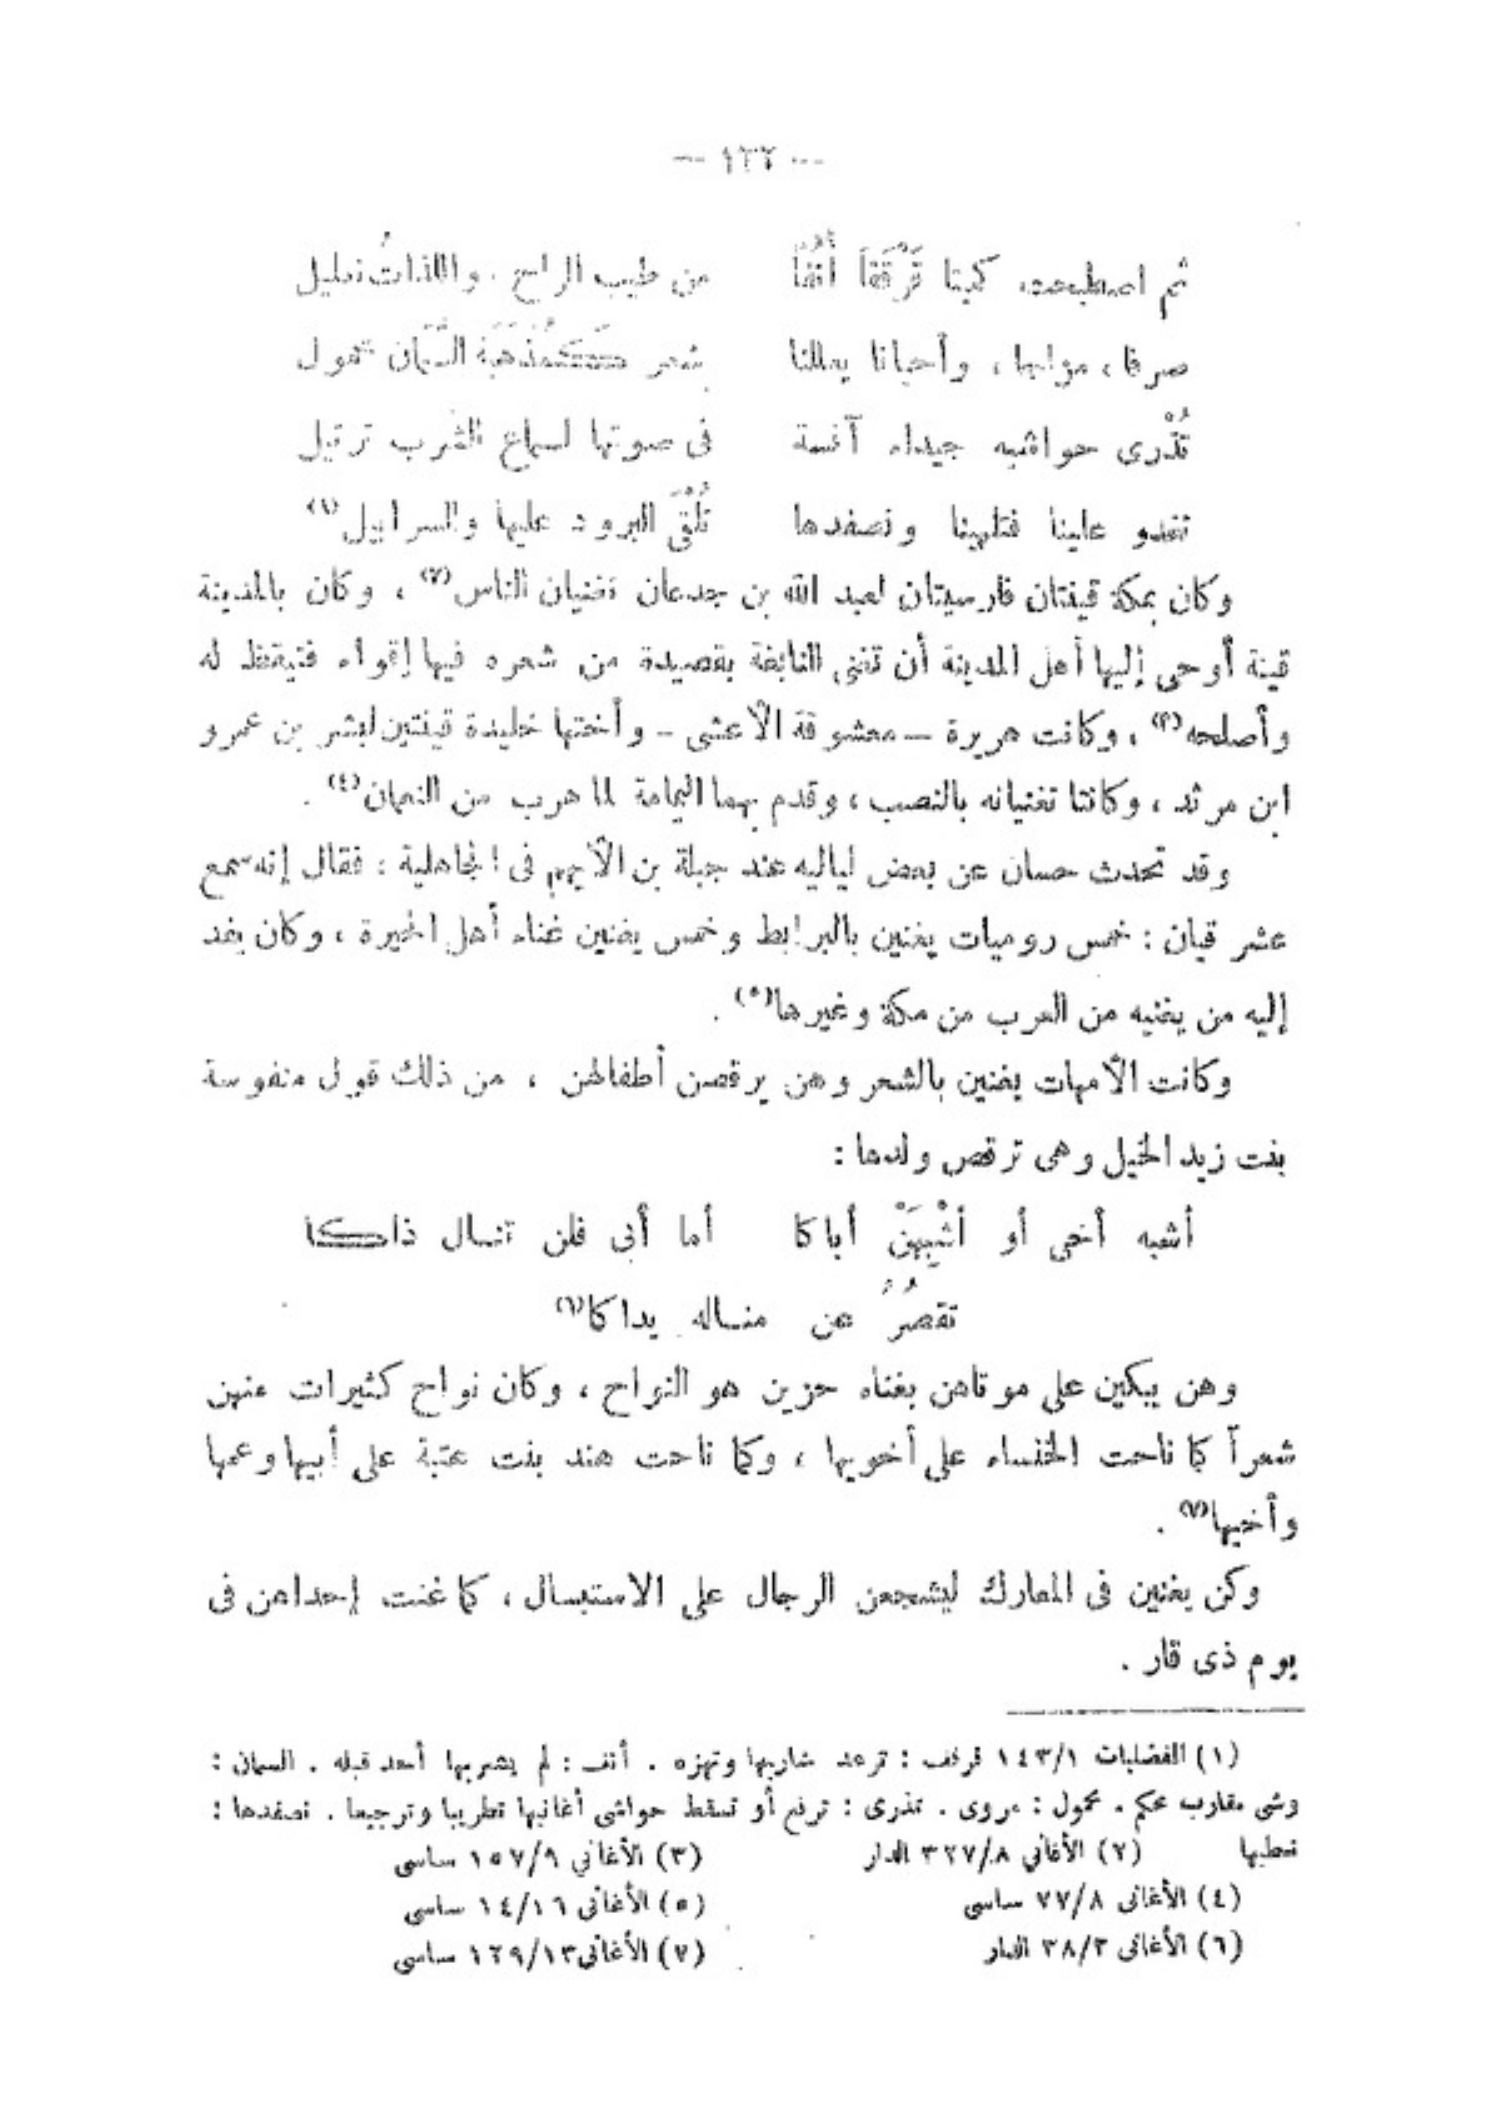 — ١٣٢ —
ثم اصطبحت كميتا قَرْقَفاً أُنُفاً من طيب الراح ، واللذاتُ تعليل
صرفا ، مزاجا ، وأحيانا يعللنا شعر كَمُذْهَبَة السَّمَّان محمول
تُذْرى حواشيه جيداء آنسة فى صوتها لسماع الشرب ترتيل
تغدو علينا فتلهينا ونصفدها تُلْقَى البرود عليها والسرابيل(١)
وكان بمكة قينتان فارسيتان لعبد الله بن جدعان تغنيان الناس(٢) ، وكان بالمدينة
قينة أوحى إليها أهل المدينة أن تغنى النابغة بقصيدة من شعره فيها إقواء فتيقظ له
وأصلحه(٣) ، وكانت هريرة — معشوقة الأعشى — وأختها خليدة قينتين لبشر بن عمرو
ابن مرثد ، وكانتا تغنيانه بالنصب ، وقدم بهما اليمامة لما هرب من النعمان(٤) .
وقد تحدث حسان عن بعض لياليه عند جبلة بن الأيهم فى الجاهلية ، فقال إنه سمع
عشر قيان : خمس روميات يغنين بالبرابط وخمس يغنين غناء أهل الحيرة ، وكان يفد
إليه من يغنيه من العرب من مكة وغيرها(٥) .
وكانت الأمهات يغنين بالشعر وهن يرقصن أطفالهن ، من ذلك قول منفوسة
بنت زيد الخيل وهى ترقص ولدها :
أشبه أخى أو أشْبِهَنْ أباكا أما أبى فلن تنال ذاكا
تقصُرُ عن مناله يداكا(٦)
وهن يبكين على موتاهن بغناء حزين هو النواح ، وكان نواح كثيرات منهن
شعراً كما ناحت الخنساء على أخويها ، وكما ناحت هند بنت عتبة على أبيها وعمها
وأخيها(٧) .
وكن يغنين فى المعارك ليشجعن الرجال على الاستبسال ، كما غنت إحداهن فى
يوم ذى قار .
(١) المفضليات ١٤٣/١ قرقف : ترعد شاربها وتهزه . أنف : لم يشربها أحد قبله . السمان :
وشى مقارب محكم . محمول : مروى . تذرى : ترفع أو تسقط حواشى أغانيها تطريبا وترجيعا . نصفدها :
نعطيها (٢) الأغانى ٣٢٧/٨ الدار (٣) الأغاني ١٥٧/٩ ساسى
(٤) الأغانى ٧٧/٨ ساسى (٥) الأغانى ١٤/١٦ ساسى
(٦) الأغانى ٣٨/٢ الدار (٧) الأغانى ١٢٩/١٣ ساسى